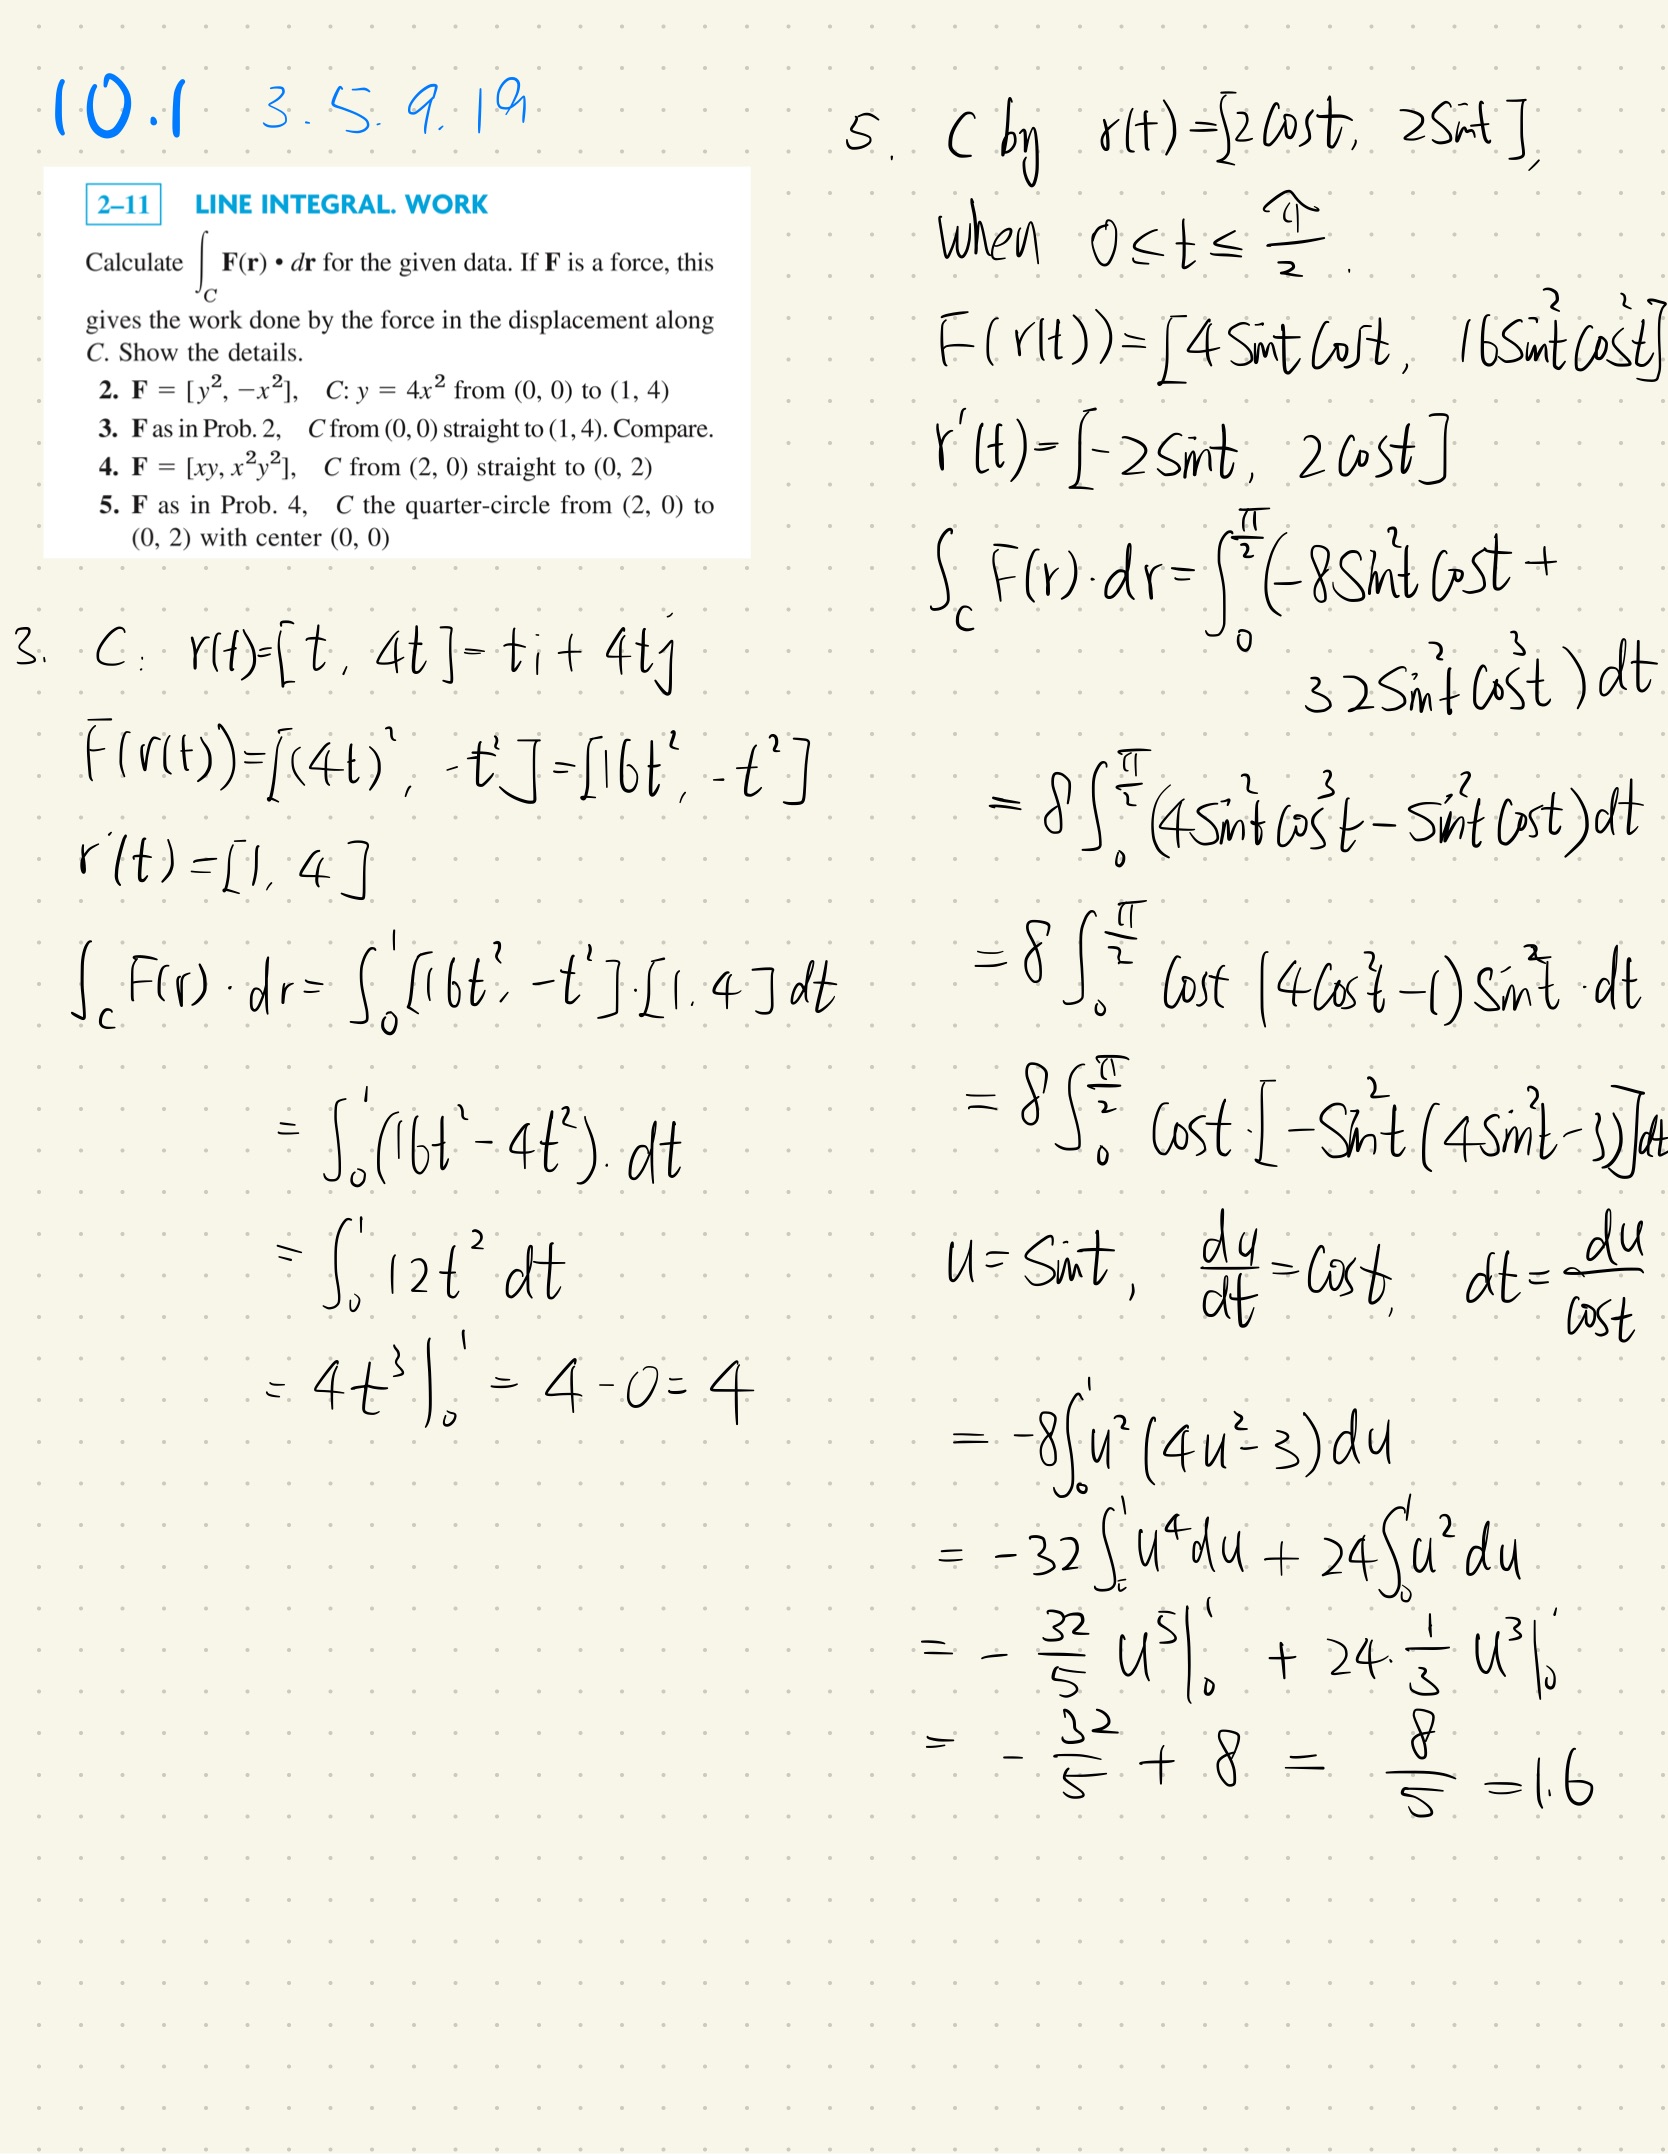 10.1 3. 5. 9. 19
2–11 LINE INTEGRAL. WORK
Calculate ∫_C F(r) • dr for the given data. If F is a force, this
gives the work done by the force in the displacement along
C. Show the details.
2. F = [y², −x²], C: y = 4x² from (0, 0) to (1, 4)
3. F as in Prob. 2, C from (0, 0) straight to (1, 4). Compare.
4. F = [xy, x²y²], C from (2, 0) straight to (0, 2)
5. F as in Prob. 4, C the quarter-circle from (2, 0) to
(0, 2) with center (0, 0)
3. C: r(t)=[t, 4t]= ti + 4tj
F(r(t))=[(4t)², -t²]=[16t², -t²]
r'(t)=[1, 4]
∫_C F(r)·dr= ∫₀¹ [16t², -t²]·[1, 4] dt
= ∫₀¹ (16t² - 4t²)·dt
= ∫₀¹ 12t² dt
= 4t³|₀¹ = 4-0= 4
5. C by r(t)=[2cost, 2sint],
when 0≤t≤ π/2.
F(r(t))=[4sintcost, 16sin²tcos²t]
r'(t)=[-2sint, 2cost]
∫_C F(r)·dr= ∫₀^(π/2) (-8sin²tcost +
32sin²tcos³t)dt
= 8∫₀^(π/2) (4sin²tcos³t - sin²tcost)dt
= 8∫₀^(π/2) cost (4cos²t -1)sin²t·dt
= 8∫₀^(π/2) cost·[-sin²t(4sin²t-3)]dt
u= sint, du/dt =cost, dt= du/cost
= -8∫₀¹ u²(4u²-3)du
= -32∫₀¹ u⁴du + 24∫₀¹ u²du
= - 32/5 u⁵|₀¹ + 24·1/3 u³|₀¹
= - 32/5 + 8 = 8/5 =1.6